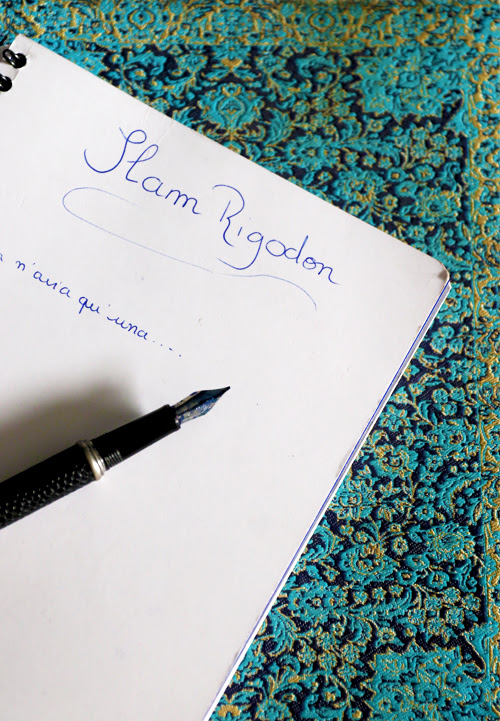 Slam Rigodon
n'avia qu'una....